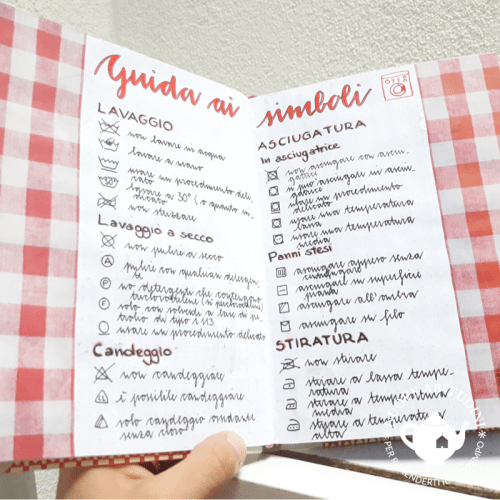 Guida ai simboli
LAVAGGIO
non lavare in acqua
lavare a mano
usare un procedimento deli-
cato
lavare a 30° (o quanto in-
dicato
non strizzare
Lavaggio a secco
non pulire a secco
A
pulire con qualsiasi detergen-
te
P
no detergenti che contengono
tricloroetilene (si percloroetilene)
F
solo con solventi a base di pe-
trolio di tipo 113
usare un procedimento delicato
Candeggio
non candeggiare
è possibile candeggiare
solo candeggio ossidante
senza cloro
ASCIUGATURA
In asciugatrice
non asciugare con asciu-
gatrice
si può asciugare in asciu-
gatrice
usare un procedimento
delicato
usare una temperatura
bassa
usare una temperatura
media
Panni stesi
asciugare appeso senza
centrifugare
asciugare in superficie
piana
asciugare all'ombra
asciugare su filo
STIRATURA
non stirare
stirare a bassa tempe-
ratura
stirare a temperatura
media
stirare a temperatura
alta